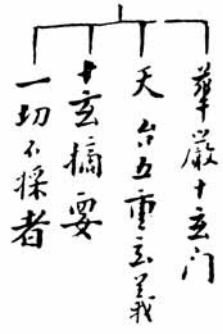 華嚴十玄门
天台五重玄義
十玄摘要
一切不採者